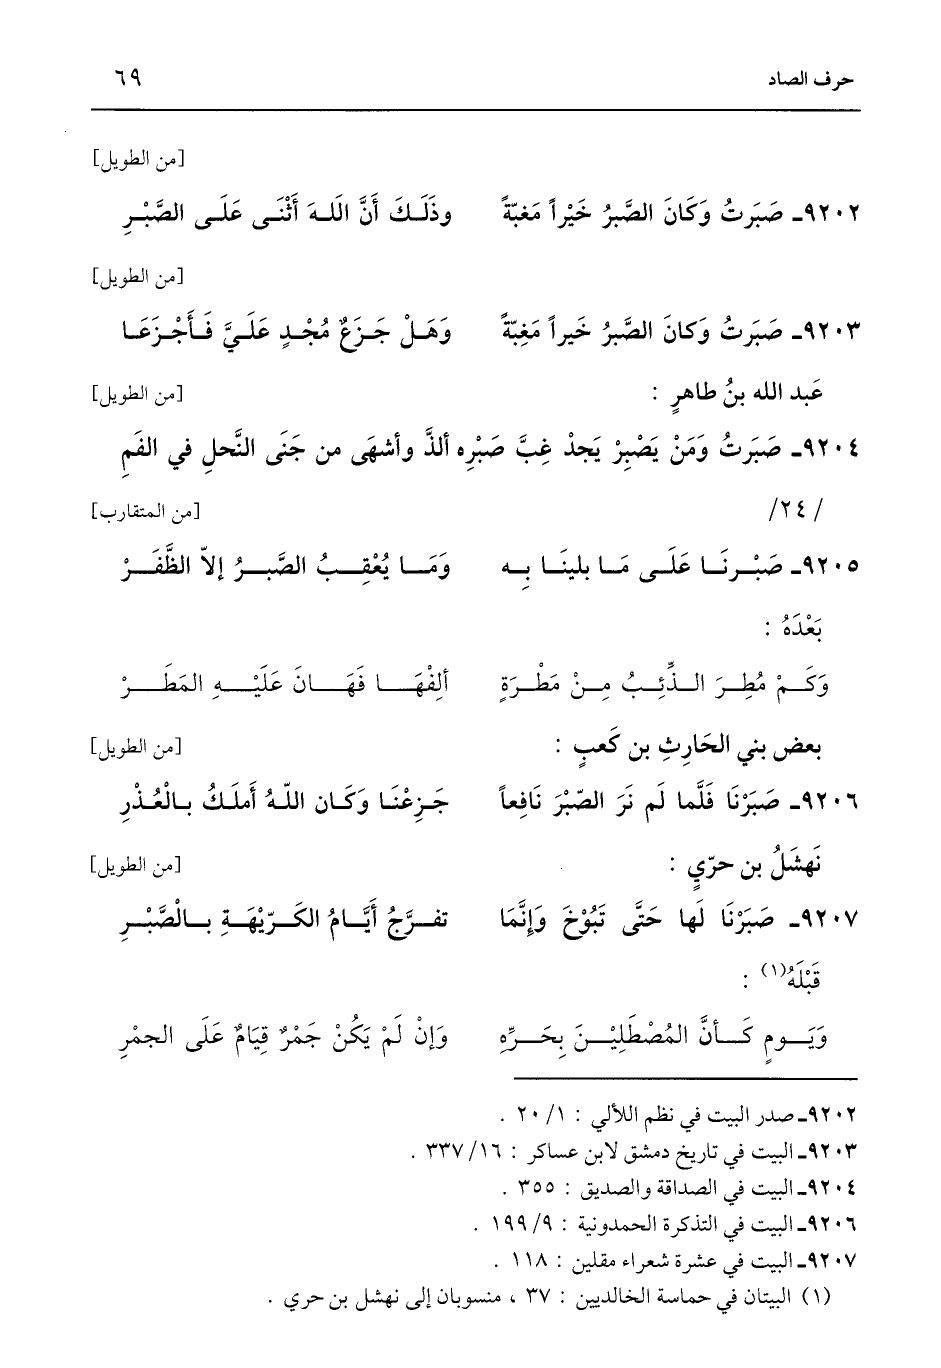 حرف الصاد ٦٩
[من الطويل]
٩٢٠٢ـ صَبَرتُ وَكَانَ الصَّبرُ خَيْراً مَغبّةً وذَلَـكَ أَنَّ اللَـهَ أَثْنَـى عَلَـى الصَّبْـرِ
[من الطويل]
٩٢٠٣ـ صَبَرتُ وَكانَ الصَّبرُ خَيراً مَغِبّةً وَهَـلْ جَـزَعٌ مُجْـدٍ عَلَـيَّ فَـأَجْـزَعَـا
عَبد الله بنُ طاهرٍ : [من الطويل]
٩٢٠٤ـ صَبَرتُ وَمَنْ يَصْبِرْ يَجدْ غِبَّ صَبْرِه ألذَّ وأشهَى من جَنَى النَّحلِ في الفَمِ
/٢٤/ [من المتقارب]
٩٢٠٥ـ صَبْـرنَـا عَلَـى مَـا بلينَـا بِـه وَمَـا يُعْقِـبُ الصَّبـرُ إلاّ الظَّفَـرْ
بَعْدَهُ :
وَكَـمْ مُطِـرَ الـذِّئـبُ مِـنْ مَطْـرَةٍ أَلِفْهَـا فَهَـانَ عَلَيْـهِ المَطَـرْ
بعض بني الحَارِثِ بن كَعبٍ : [من الطويل]
٩٢٠٦ـ صَبَرْنَا فَلَّما لَم نَرَ الصّبْرَ نَافِعاً جَـزِعْنَـا وَكَـان اللّهُ أَملَـكُ بـالْعُـذْرِ
نَهشَلُ بن حرّيٍ : [من الطويل]
٩٢٠٧ـ صَبَرْنَا لَها حَتَّى تَبُوْخَ وَإِنَّمَا تفـرَّجُ أَيَّـامُ الكَـرّيْهَـةِ بـالْصَّبْـرِ
قَبْلَهُ(١) :
وَيَـومٍ كَـأنَّ المُصْطَلِيْـنَ بِحَـرِّهِ وَإِنْ لَمْ يَكُنْ جَمْرٌ قِيَامٌ عَلَى الجمْرِ
٩٢٠٢ـ صدر البيت في نظم اللألي : ٢٠/١ .
٩٢٠٣ـ البيت في تاريخ دمشق لابن عساكر : ٣٣٧/١٦ .
٩٢٠٤ـ البيت في الصداقة والصديق : ٣٥٥ .
٩٢٠٦ـ البيت في التذكرة الحمدونية : ١٩٩/٩ .
٩٢٠٧ـ البيت في عشرة شعراء مقلين : ١١٨ .
(١) البيتان في حماسة الخالديين : ٣٧ ، منسوبان إلى نهشل بن حري .